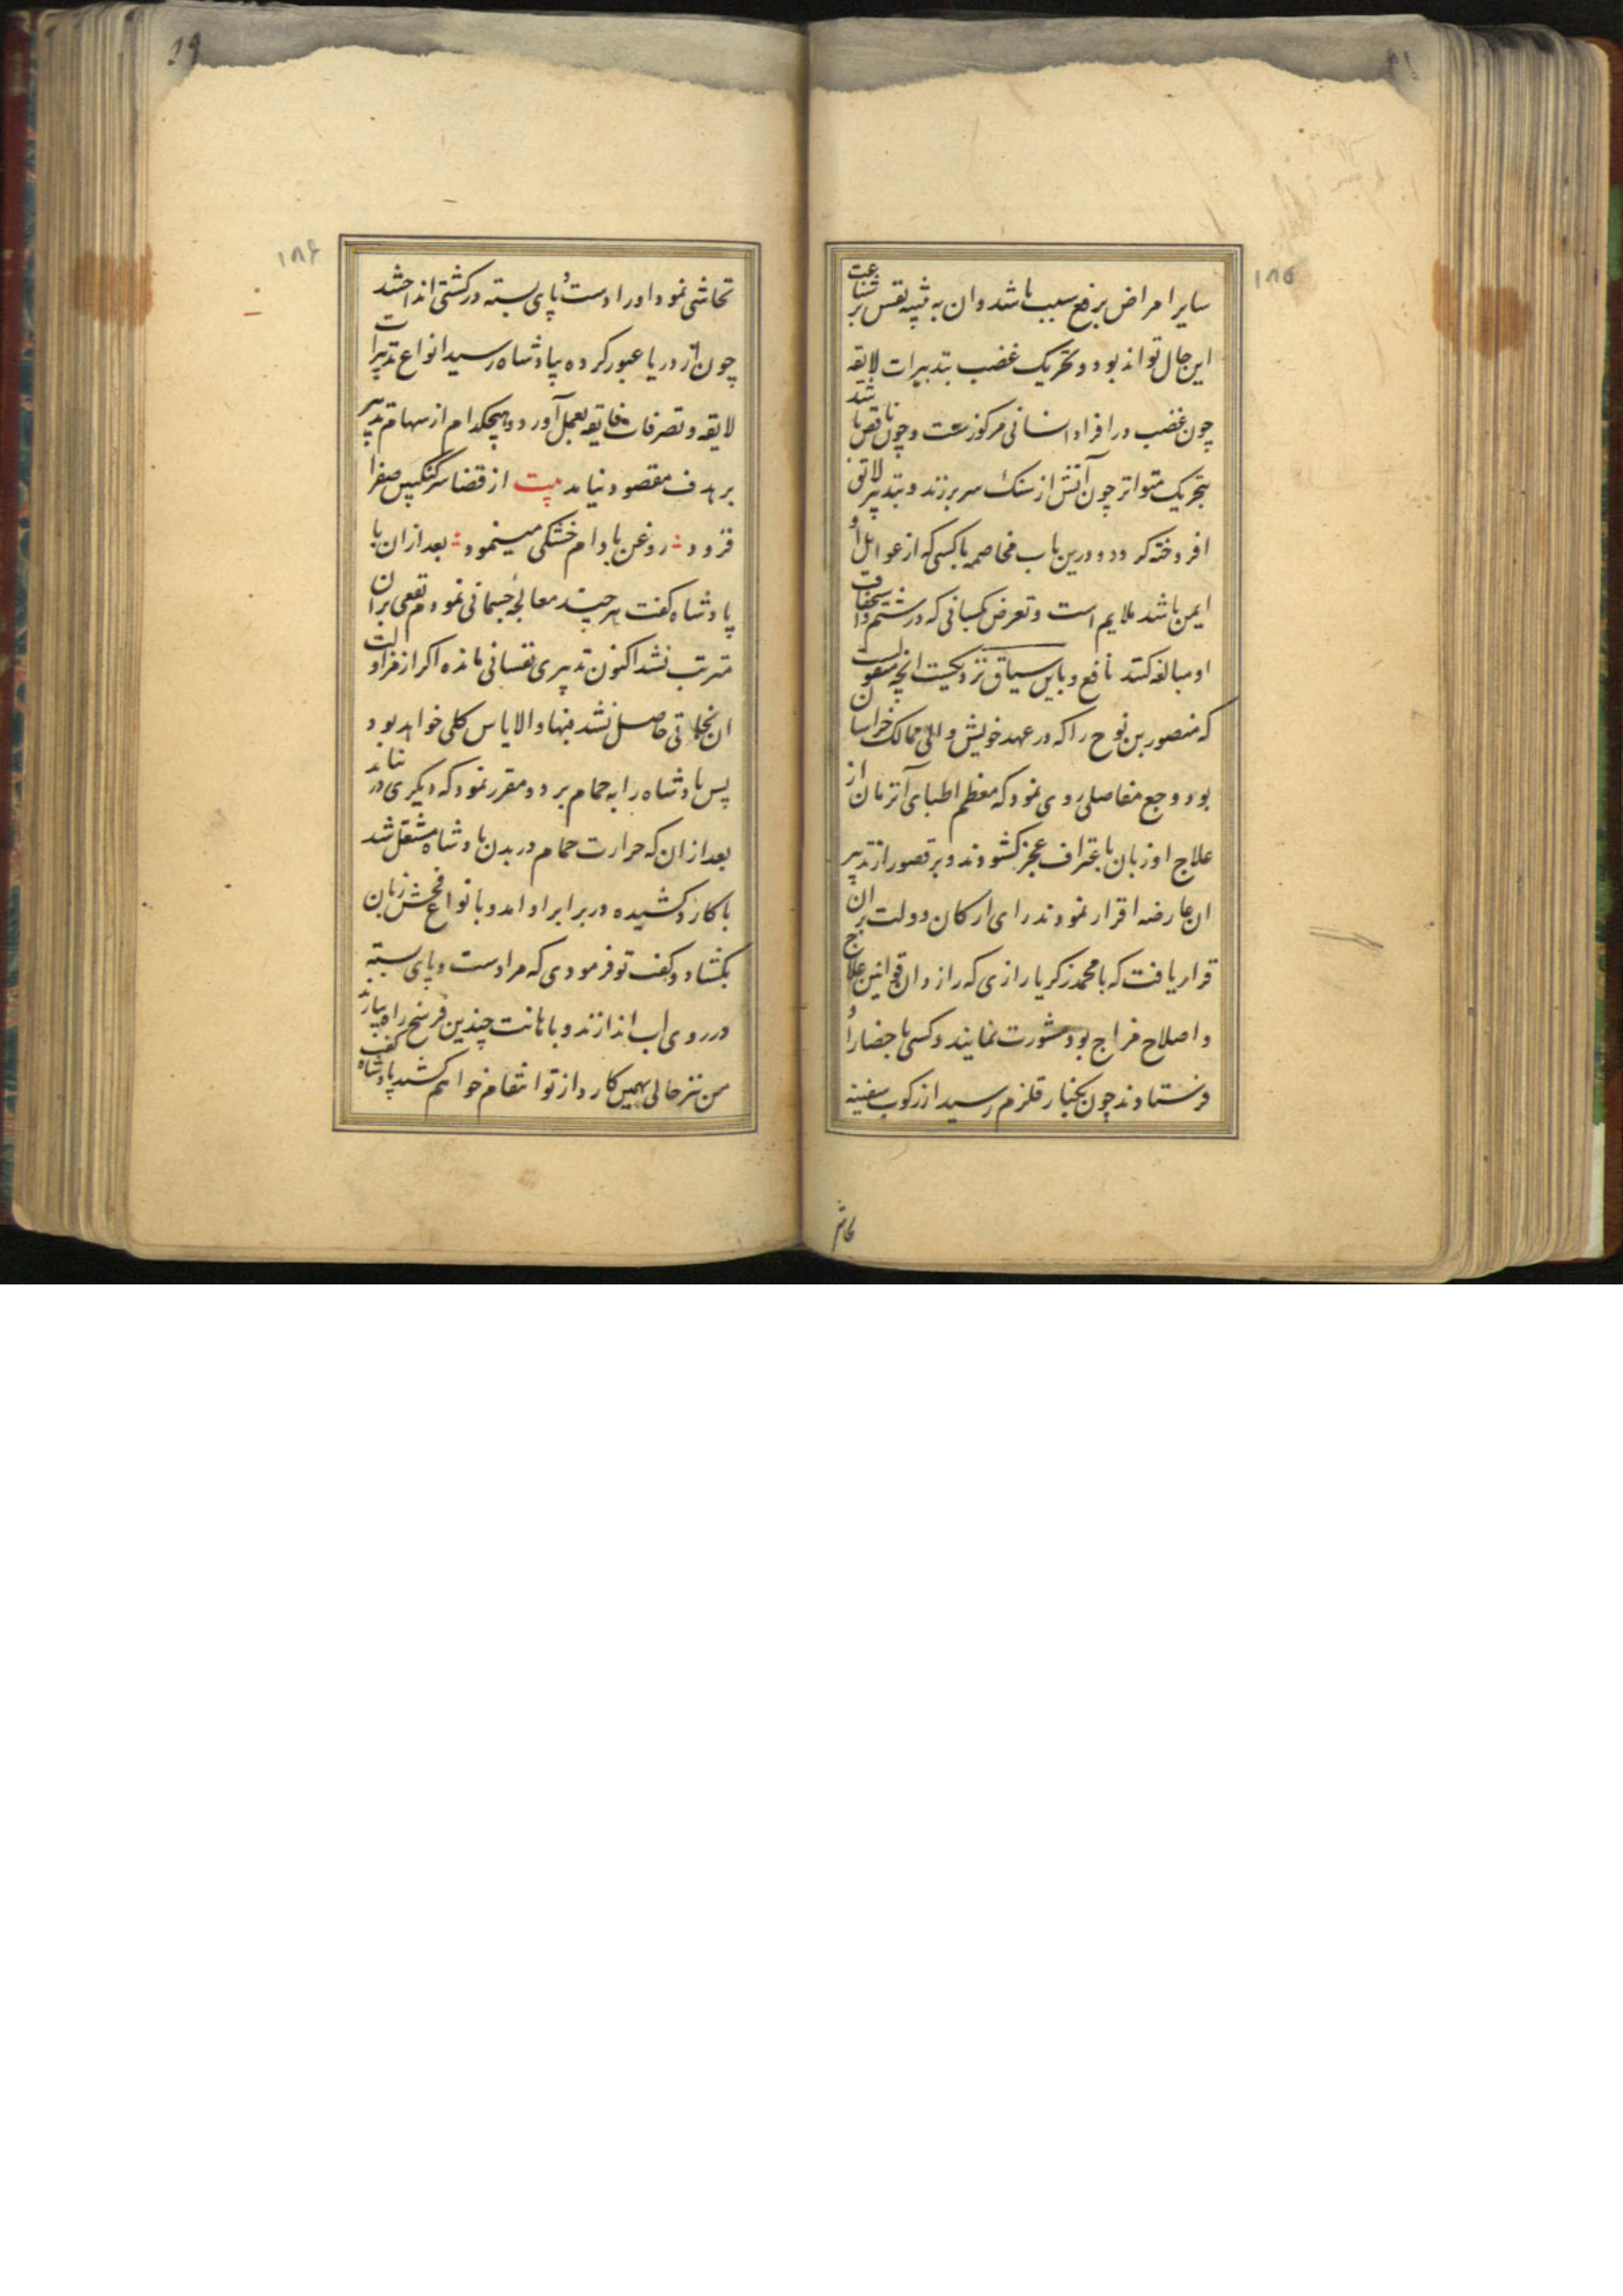 ۱۸۵
سایر امراض برفع سبب باشد و ان به تنبیه نفس بر شناعت
این حال تواند بود و تحریک غضب بتدبیرات لایقه
چون غضب در افراد انسانی مرکوزست و چون ناقص باشد
بتحریک متواتر چون آتش از سنک سر برزند و بتدبیر لایق
افروخته کردد و درین باب مخاصمه با کسی که از عوایل او
ایمن باشد ملایم است و تعرض کسانی که در شتم و استخفاف
او مبالغه کنند نافع و باین سیاق نزدیکست انچه منقولست
که منصور بن نوح را که در عهد خویش والی ممالک خراسان
بود وجع مفاصلی روی نمود که معظم اطبای آنزمان از
علاج او زبان باعتراف عجز کشودند و بر قصور از تدبیر
ان عارضه اقرار نمودند رای ارکان دولت بران
قرار یافت که با محمد زکریا رازی که رازدان قوانین علاج
و اصلاح مزاج بود مشورت نمایند و کسی باحضار او
فرستادند چون بکنار قلزم رسید از رکوب سفینه
تحاشی
۱۸۶
تحاشی نمود او را دست و پای بسته در کشتی انداختند
چون از دریا عبور کرده بپادشاه رسید انواع تدبیرات
لایقه و تصرفات فایقه بعمل آورد و هیچکدام از سهام تدبیر
بر هدف مقصود نیامد بیت از قضا سرکنکبین صفرا
فزود روغن بادام خشکی مینمود بعد از ان با
پادشاه کفت هر چند معالجه جسمانی نمودم نفعی بران
مترتب نشد اکنون تدبیری نفسانی مانده اکر از مزاولت
ان نجاتی حاصل نشد فبها و الا یاس کلی خواهد بود
پس پادشاه را به حمام برد و مقرر نمود که دیکری در نیاید
بعد از ان که حرارت حمام در بدن پادشاه مشتعل شد
با کارد کشیده در برابر او امد و بانواع فحش زبان
بکشاد و کفت تو فرمودی که مرا دست و پای بسته
در روی اب اندازند و باهانت چندین فرسخ راه بیارند
من نیز حالی بهمین کارد از تو انتقام خواهم کشید پادشاه